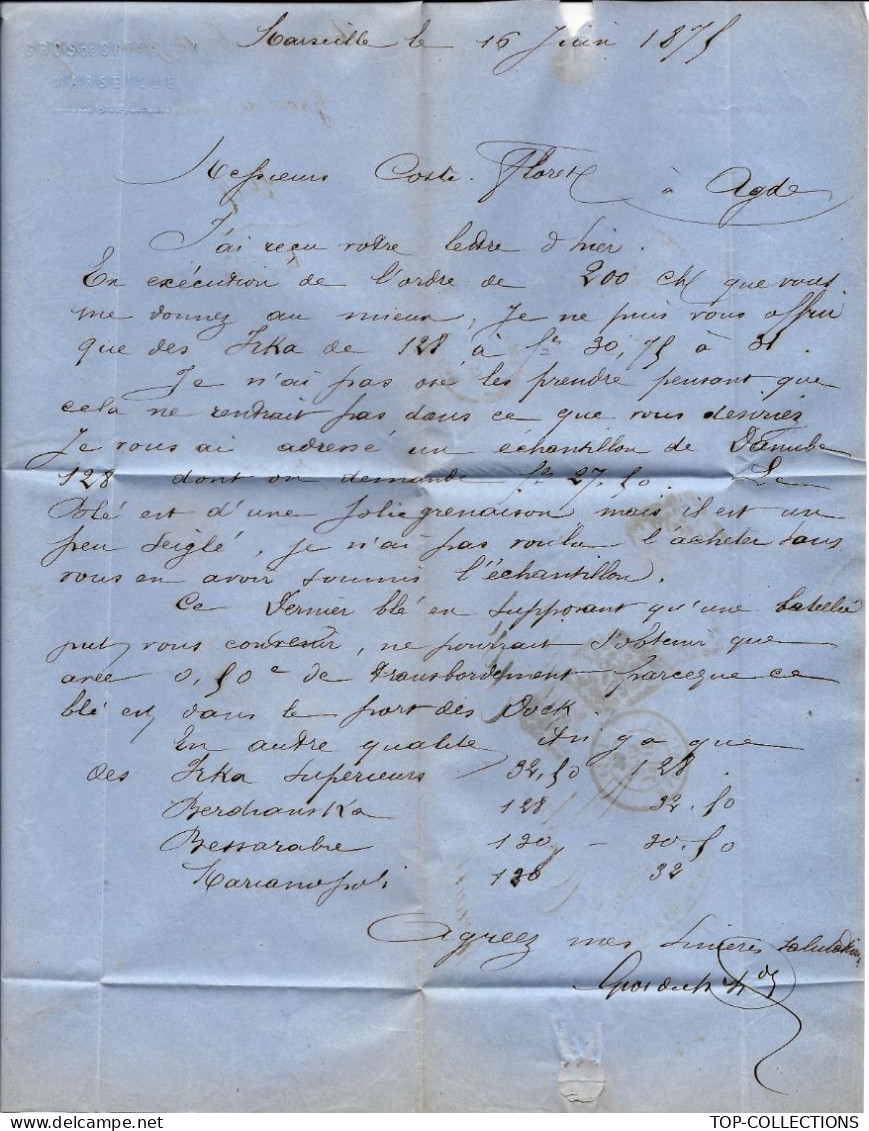 MARSEILLE
Marseille le 16 Juin 1875
Messieurs Coste Floret à Agde
J'ai reçu votre lettre d'hier.
En exécution de l'ordre de 200 ch que vous
me donnez au mieux, Je ne puis vous offrir
que des Irka de 128 à fs 30,75 à 31
Je n'ai pas osé les prendre pensant que
cela ne rentrait pas dans ce que vous desiriez
Je vous ai adressé un échantillon de Danube
128 dont on demande fs 27.50. Le
Blé est d'une jolie grenaison mais il est un
peu seiglé, je n'ai pas voulu l'acheter sans
vous en avoir soumis l'échantillon.
Ce dernier blé en supposant qu'une
put vous convenir, ne pourrait s'obtenir que
avec 0,50c de transbordement parceque ce
blé est dans le port des Dock.
En autre qualité il n'y a que
des Irka supérieurs 32,50 128
Berdianska 128 32.50
Bessarabie 130 - 30.50
Marianopoli 130 32
Agréez mes sincères salutations
TOP-COLLECTIONS